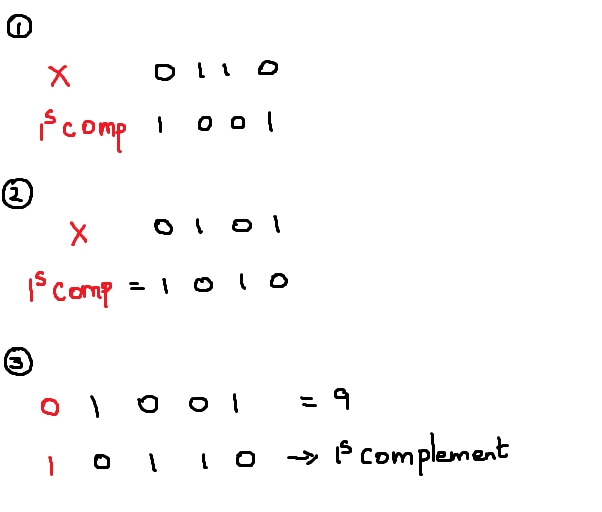 ①
X 0 1 1 0
1ˢ comp 1 0 0 1
②
X 0 1 0 1
1ˢ comp = 1 0 1 0
③
0 1 0 0 1 = 9
1 0 1 1 0 → 1ˢ complement